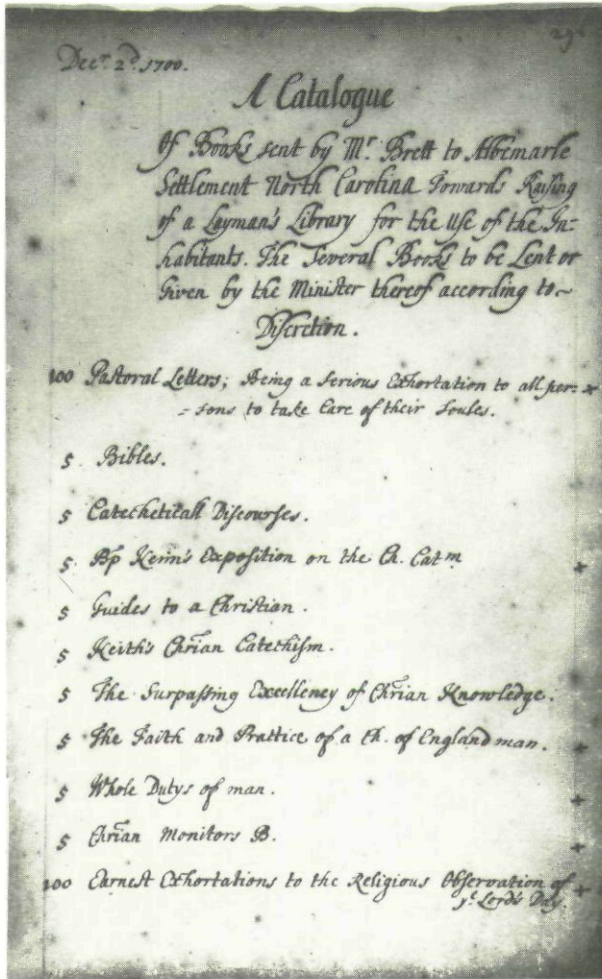 296
Decr. 2d. 1700.
A Catalogue
Of Books sent by Mr. Brett to Albemarle
Settlement North Carolina Towards Raising
of a Layman's Library for the Use of the In=
habitants. The Several Books to be Lent or
Given by the Minister thereof according to~
Discretion.
100 Pastoral Letters; Being a serious Exhortation to all per= x
= sons to take Care of their Soules.
5 Bibles.
5 Catecheticall Discourses.
5 Bp Kenn's Exposition on the Ch. Catm +
5 Guides to a Christian.
5 Keith's Chrian Catechism.
5 The Surpassing Excellency of Chrian Knowledge.
5 The Faith and Practice of a Ch. of England man. +
5 Whole Dutys of man. +
5 Chrian Monitors B. +
100 Earnest Exhortations to the Religious Observation of +
ye Lord's Day.